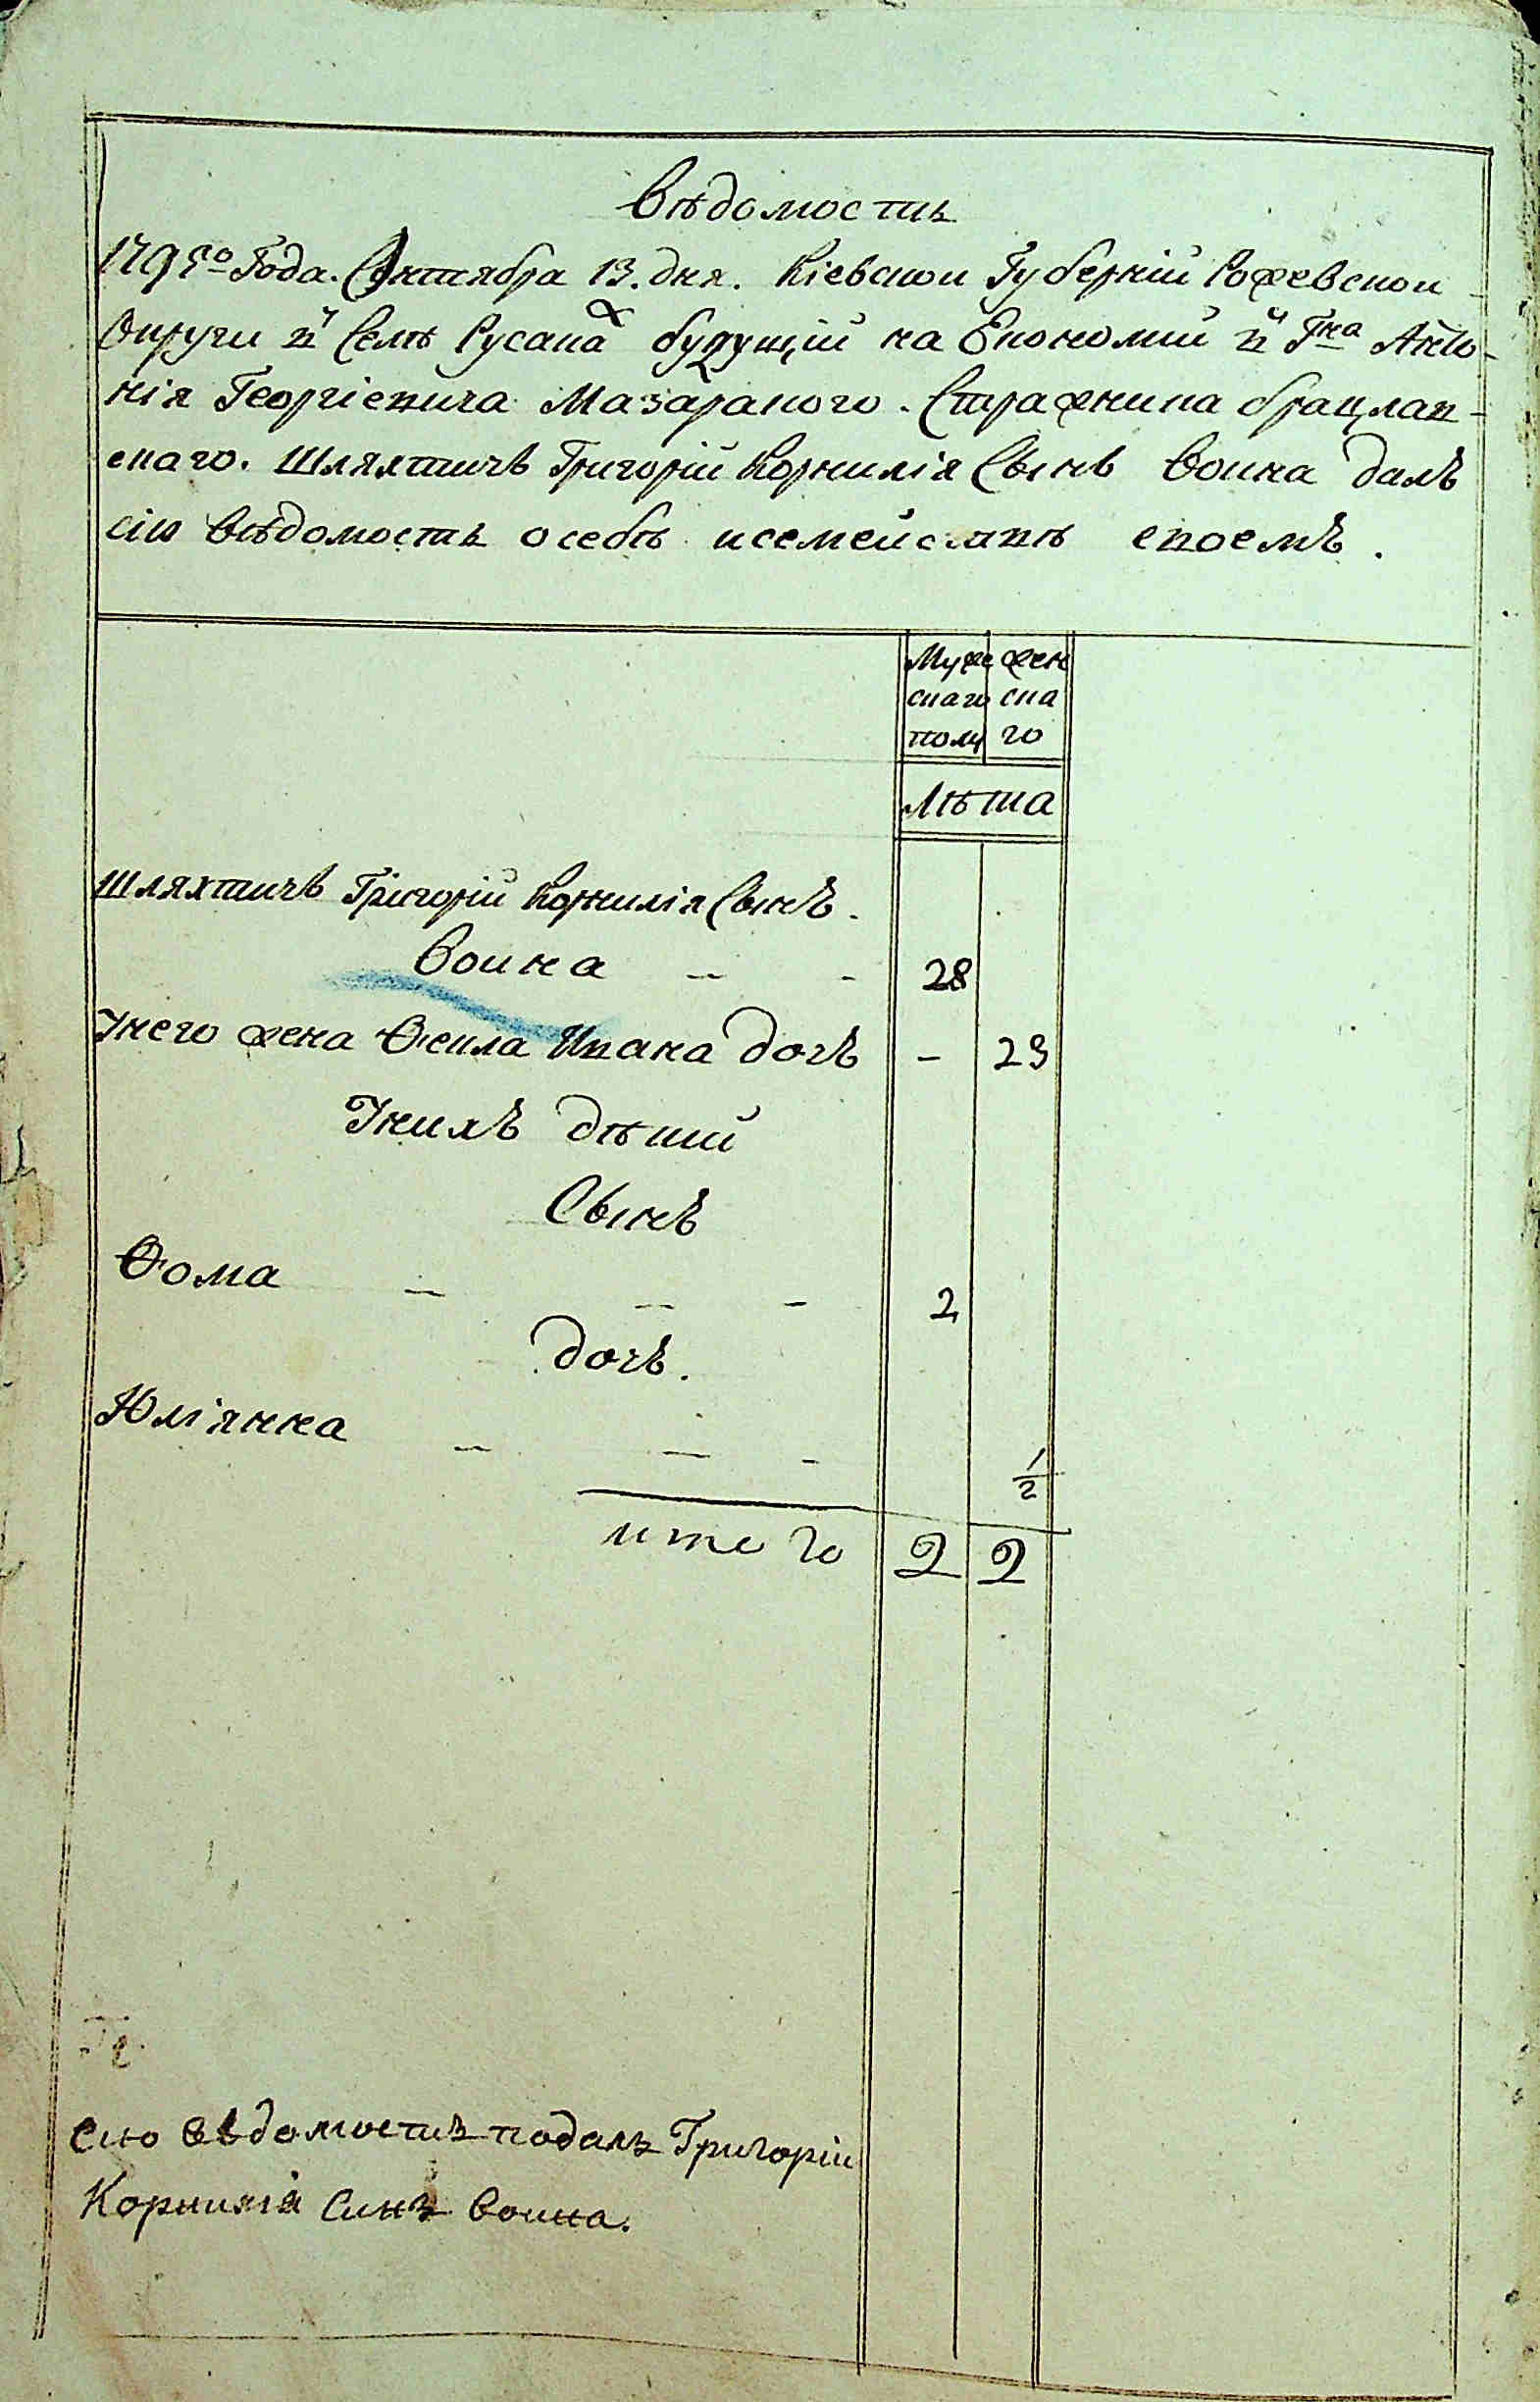 Вѣдомость
1795го Года. Октября 13. дня. Кіевскои Губерніи Рожевскои
Округи в Селѣ Русаках будущій на Економіи в Гна Анто-
нія Георгіевича Мазаракого. Стражника брацлав-
скаго. Шляхтичъ Григорій Корнилія Сынъ Воина далъ
сію Вѣдомость о себѣ и семействѣ своемъ.
Муже жен
скаго ска
полу го
Лѣта
Шляхтичъ Григорій Корнилія Сынъ.
Воина - - 28
Унего жена Ѳекла Ивана дочъ - 29
Унихъ дѣтий
Сынъ
Ѳома - - - 2
дочъ.
Юліянна - - - 1/2
итого 2 2
Сию вѣдомость подалъ Григоріи
Корнилія Синъ Воина.